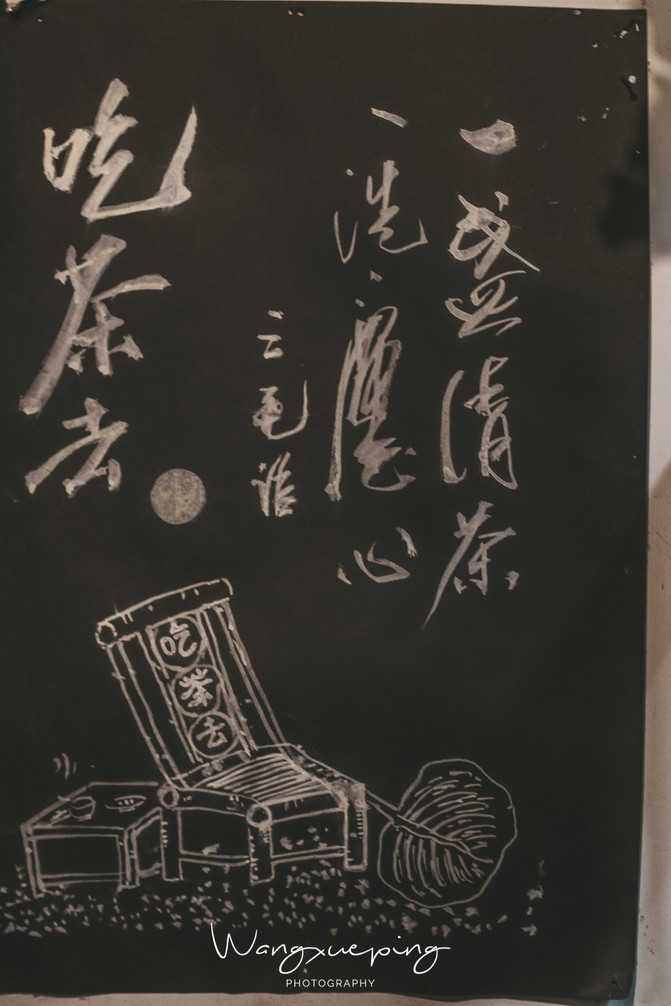 一盏清茶
一洗塵心
三毛
吃茶去
吃茶去
Wangxueping
PHOTOGRAPHY